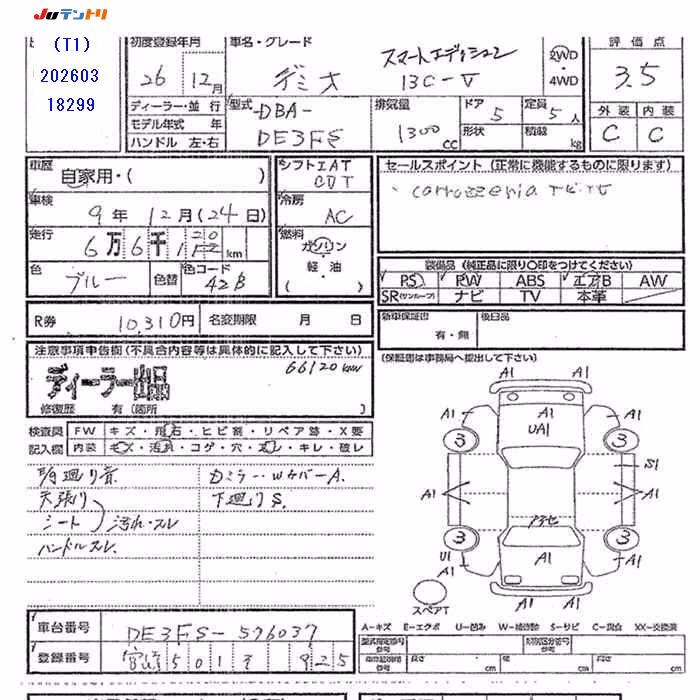 Juテントリ
(T1)
202603
18299
初度登録年月
26 12月
ディーラー・並 行
モデル年式 年
ハンドル 左・右
車名・グレード
デミオ
スマートエディション
13C-V
2WD
4WD
型式
-DBA-
DE3FS
排気量
1300 cc
ドア
5
形状
定員
5人
積載 kg
評価点
3.5
外装 内装
C C
車歴
自家用・( )
車検
9年 12月(24日)
走行
6万6千 km
色
ブルー
色替
色コード
42B
シフト
AT
冷房
AC
燃料
ガソリン
軽・油
( )
セールスポイント (正常に機能するものに限ります)
carrozzeria ナビTV
装備品(純正品に限り〇印をつけてください)
PS PW ABS エアB AW
SR(サンルーフ) ナビ TV 本革
R券 10,310円 名変期限 月 日
新車保証書
有・無
後日品
(保証書は事務局へ提出して下さい)
注意事項申告欄(不具合内容等は具体的に記入して下さい)
66120km
ディーラー出品
修復歴 有(箇所 )
検査員
記入欄
FW キズ・飛石・ヒビ割・リペア跡・X要
内装 キズ・汚れ・コゲ・穴・スレ・キレ・破レ
天張り
シート
汚れ・スレ
ハンドルスレ.
下廻りS.
A1 A1 A1
UA1
3 3
A1 S1 A1
3 3
U1
A1 A1 A1
A1
スペアT
A-キズ E-エクボ U-凹み W-補修跡 S-サビ C-腐食 XX-交換済
車台番号
DE3FS-576037
登録番号
型式指定番号
参考
類別区分番号
参考
長さ cm
高さ cm